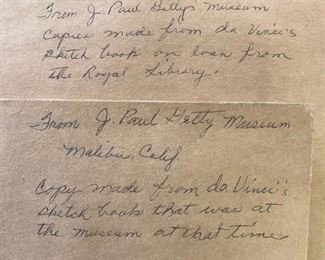 From J. Paul Getty's Museum
copies made from da Vinci's
sketch book on loan from
the Royal Library.
From J. Paul Getty Museum
Malibu, Calif.
Copy made from da Vinci's
sketch book that was at
the museum at that time